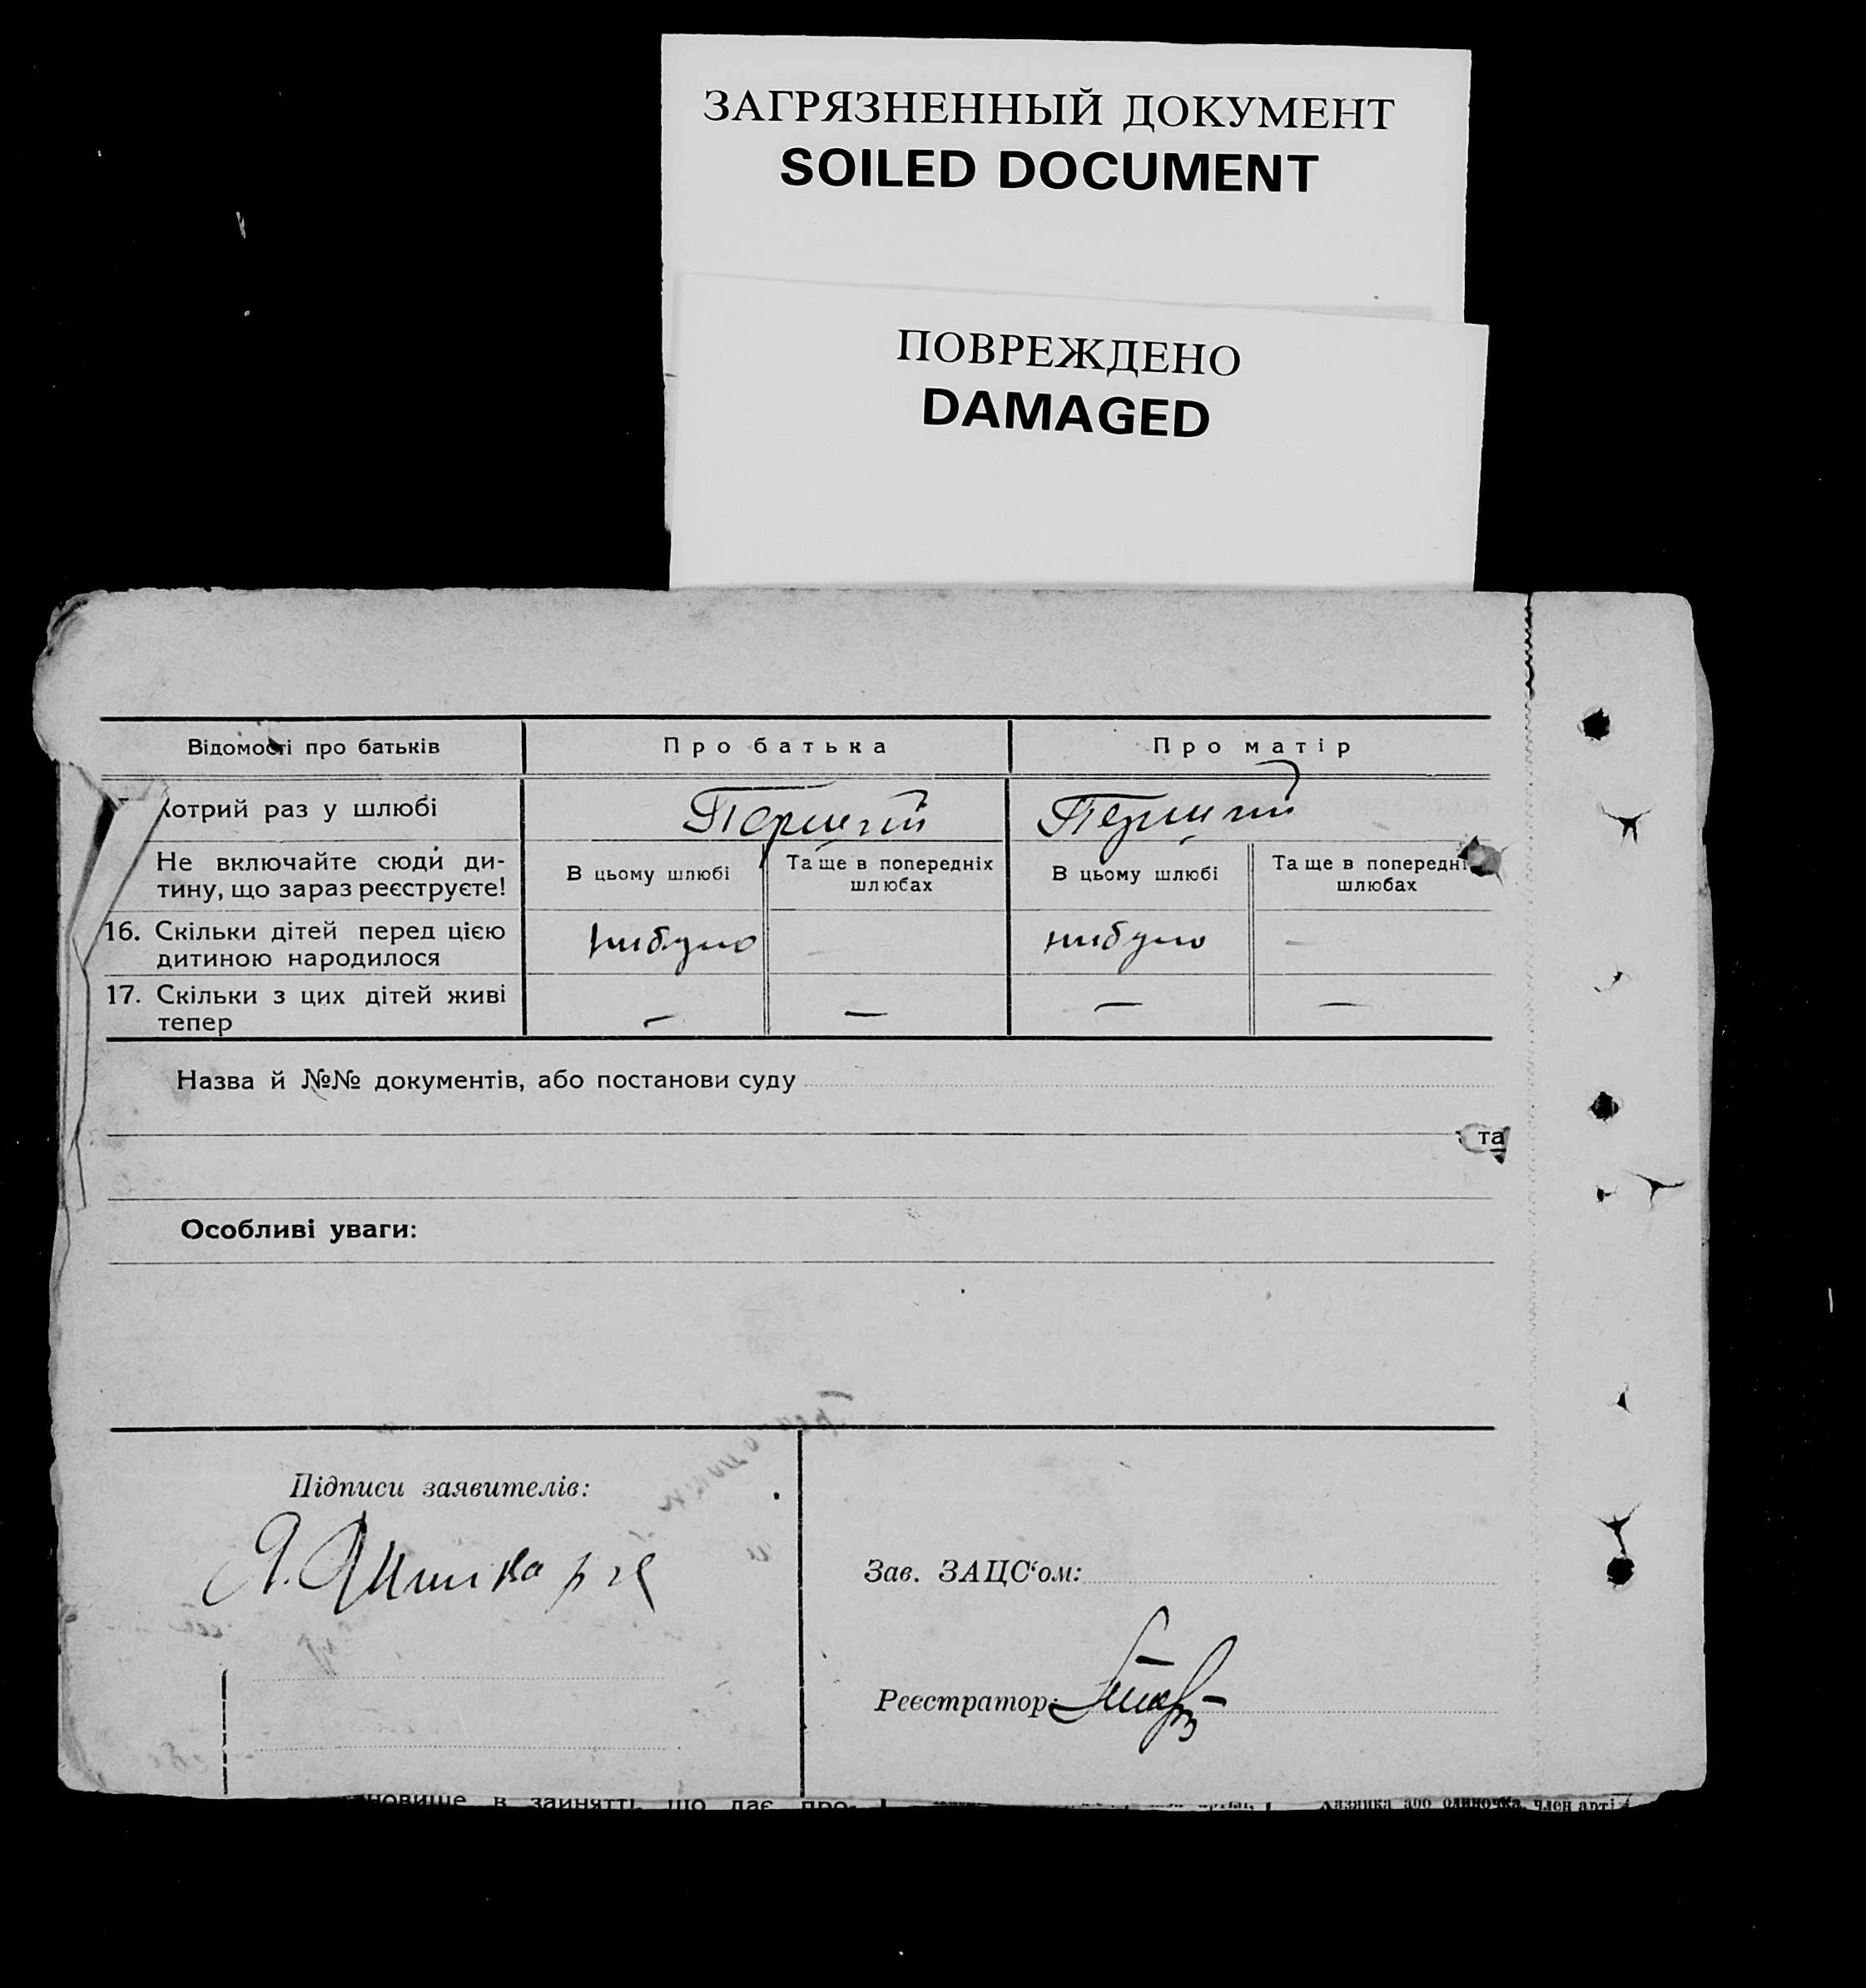 ЗАГРЯЗНЕННЫЙ ДОКУМЕНТ
SOILED DOCUMENT
ПОВРЕЖДЕНО
DAMAGED
Відомості про батьків
Про батька
Про матір
Котрий раз у шлюбі
Перший
Перший
Не включайте сюди ди-
тину, що зараз реєструєте!
В цьому шлюбі
Та ще в попередніх
шлюбах
В цьому шлюбі
Та ще в попередні
шлюбах
16. Скільки дітей перед цією
дитиною народилося
нибуло
—
нибуло
—
17. Скільки з цих дітей живі
тепер
—
—
—
—
Назва й №№ документів, або постанови суду
та
Особливі уваги:
Підписи заявителів:
Зав. ЗАЦС‘ом:
Реєстратор:
новище в занятті, що дає про-